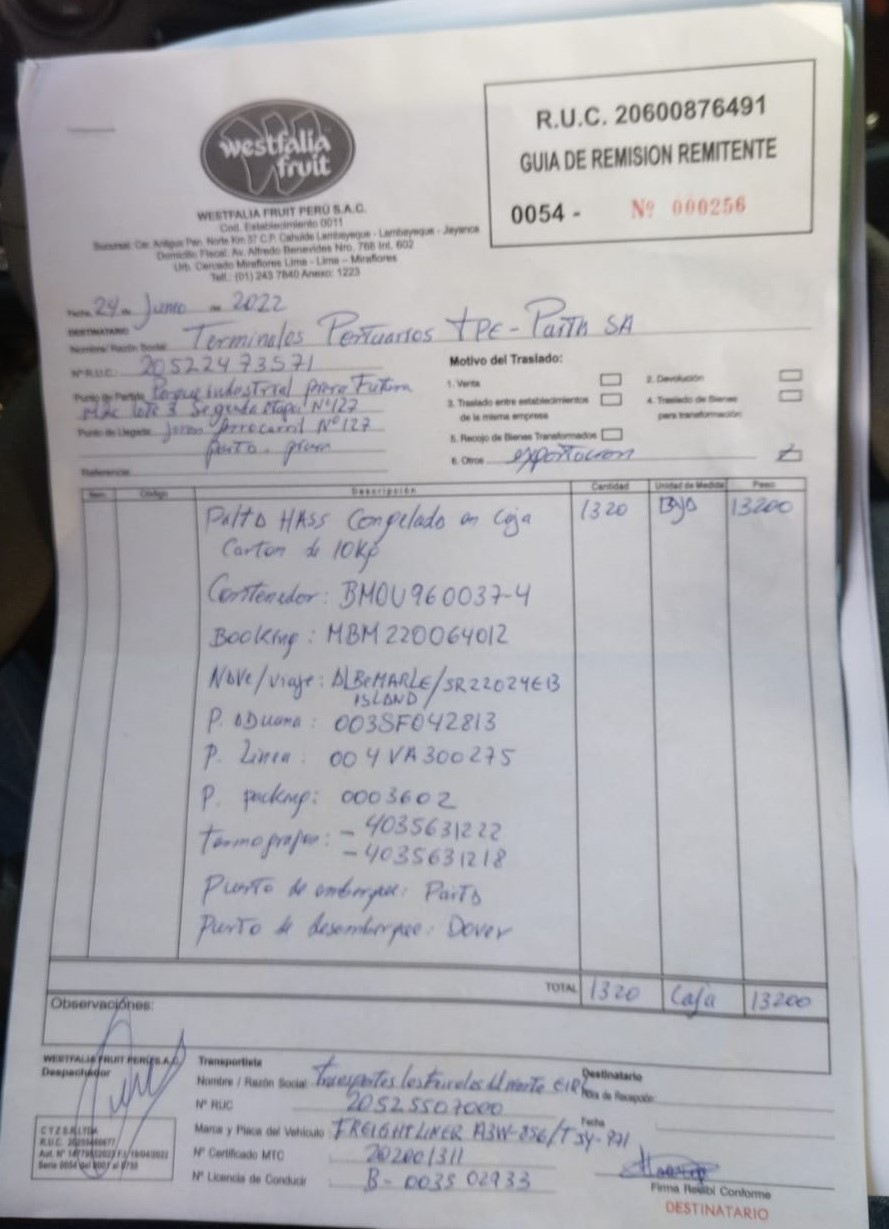 westfalia
fruit
WESTFALIA FRUIT PERÚ S.A.C.
Cod. Establecimiento 0011
Sucursal: Car. Antigua Pan. Norte Km 37 C.P. Cahuide Lambayeque - Lambayeque - Jayanca
Domicilio Fiscal: Av. Alfredo Benavides Nro. 768 Int. 602
Urb. Cercado Miraflores Lima - Lima - Miraflores
Telf.: (01) 243 7840 Anexo: 1223
R.U.C. 20600876491
GUIA DE REMISION REMITENTE
0054 - Nº 000256
Fecha 24 de Junio de 2022
DESTINATARIO
Nombre/ Razón Social: Terminales Portuarios TPE - Paita SA
Nº R.U.C.: 20522473571
Punto de Partida Parque industrial Piura Futura
Mzc lote 3 Segunda Etapa Nº 127
Punto de Llegada: Jiron Ferrocarril Nº 127
Referencia:
Motivo del Traslado:
1. Venta
2. Devolución
3. Traslado entre establecimientos
de la misma empresa
4. Traslado de Bienes
para transformación
5. Recojo de Bienes Transformados
6. Otros exportacion
Item Código Descripción Cantidad Unidad de Medida Peso
Palta HASS Congelado en Caja 1320 13200
Carton de 10Kg
Contenedor: BMOU960037-4
Booking: MBM220064012
Nave/viaje: ALBEMARLE/SR22024EB
ISLAND
P. ADuana: 003SF042813
P. Linea: 004VA300275
P. packing: 0003602
Termografos: - 4035631222
- 4035631218
Punto de embarque: Paita
Punto de desembarque: Dover
TOTAL 1320 Caja 13200
Observaciones:
WESTFALIA FRUIT PERÚ S.A.C.
Despachador
Transportista
Nombre / Razón Social: Transportes del norte EIRL
Nº RUC 20525507000
Marca y Placa del Vehículo FREIGHTLINER A3W-856/T3Y-971
Nº Certificado MTC 202001311
Nº Licencia de Conducir B- 00350 2933
Destinatario
Hora de Recepción:
Fecha
Firma Recibí Conforme
DESTINATARIO
CYZ S.R.LTDA
Serie 0054 del 0001 al